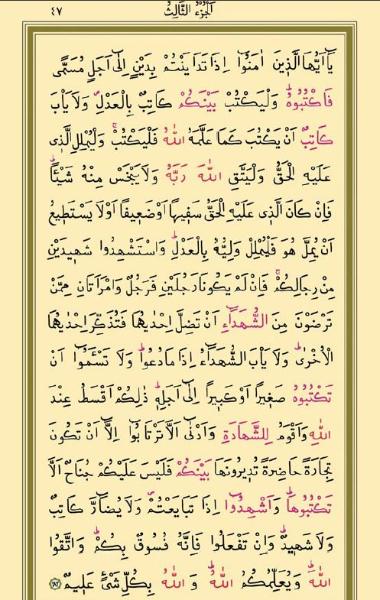 الجزء الثالث
٤٧
يَٓا اَيُّهَا الَّذ۪ينَ اٰمَنُٓوا اِذَا تَدَايَنْتُمْ بِدَيْنٍ اِلٰٓى اَجَلٍ مُسَمًّى
فَاكْتُبُوهُۜ وَلْيَكْتُبْ بَيْنَكُمْ كَاتِبٌ بِالْعَدْلِۖ وَلَا يَأْبَ
كَاتِبٌ اَنْ يَكْتُبَ كَمَا عَلَّمَهُ اللّٰهُ فَلْيَكْتُبْۚ وَلْيُمْلِلِ الَّذ۪ي
عَلَيْهِ الْحَقُّ وَلْيَتَّقِ اللّٰهَ رَبَّهُ وَلَا يَبْخَسْ مِنْهُ شَيْـًٔاۜ
فَاِنْ كَانَ الَّذ۪ي عَلَيْهِ الْحَقُّ سَف۪يهًا اَوْ ضَع۪يفًا اَوْ لَا يَسْتَط۪يعُ
اَنْ يُمِلَّ هُوَ فَلْيُمْلِلْ وَلِيُّهُ بِالْعَدْلِۜ وَاسْتَشْهِدُوا شَه۪يدَيْنِ
مِنْ رِجَالِكُمْۚ فَاِنْ لَمْ يَكُونَا رَجُلَيْنِ فَرَجُلٌ وَامْرَاَتَانِ مِمَّنْ
تَرْضَوْنَ مِنَ الشُّهَدَٓاءِ اَنْ تَضِلَّ اِحْدٰيهُمَا فَتُذَكِّرَ اِحْدٰيهُمَا
الْاُخْرٰىۜ وَلَا يَأْبَ الشُّهَدَٓاءُ اِذَا مَا دُعُواۜ وَلَا تَسْـَٔمُٓوا اَنْ
تَكْتُبُوهُ صَغ۪يرًا اَوْ كَب۪يرًا اِلٰٓى اَجَلِه۪ۜ ذٰلِكُمْ اَقْسَطُ عِنْدَ
اللّٰهِ وَاَقْوَمُ لِلشَّهَادَةِ وَاَدْنٰٓى اَلَّا تَرْتَابُٓوا اِلَّٓا اَنْ تَكُونَ
تِجَارَةً حَاضِرَةً تُد۪يرُونَهَا بَيْنَكُمْ فَلَيْسَ عَلَيْكُمْ جُنَاحٌ اَلَّا
تَكْتُبُوهَاۜ وَاَشْهِدُٓوا اِذَا تَبَايَعْتُمْۖ وَلَا يُضَٓارَّ كَاتِبٌ
وَلَا شَه۪يدٌۜ وَاِنْ تَفْعَلُوا فَاِنَّهُ فُسُوقٌ بِكُمْۜ وَاتَّقُوا
اللّٰهَۜ وَيُعَلِّمُكُمُ اللّٰهُۜ وَاللّٰهُ بِكُلِّ شَيْءٍ عَل۪يمٌ ﴿٢٨٢﴾